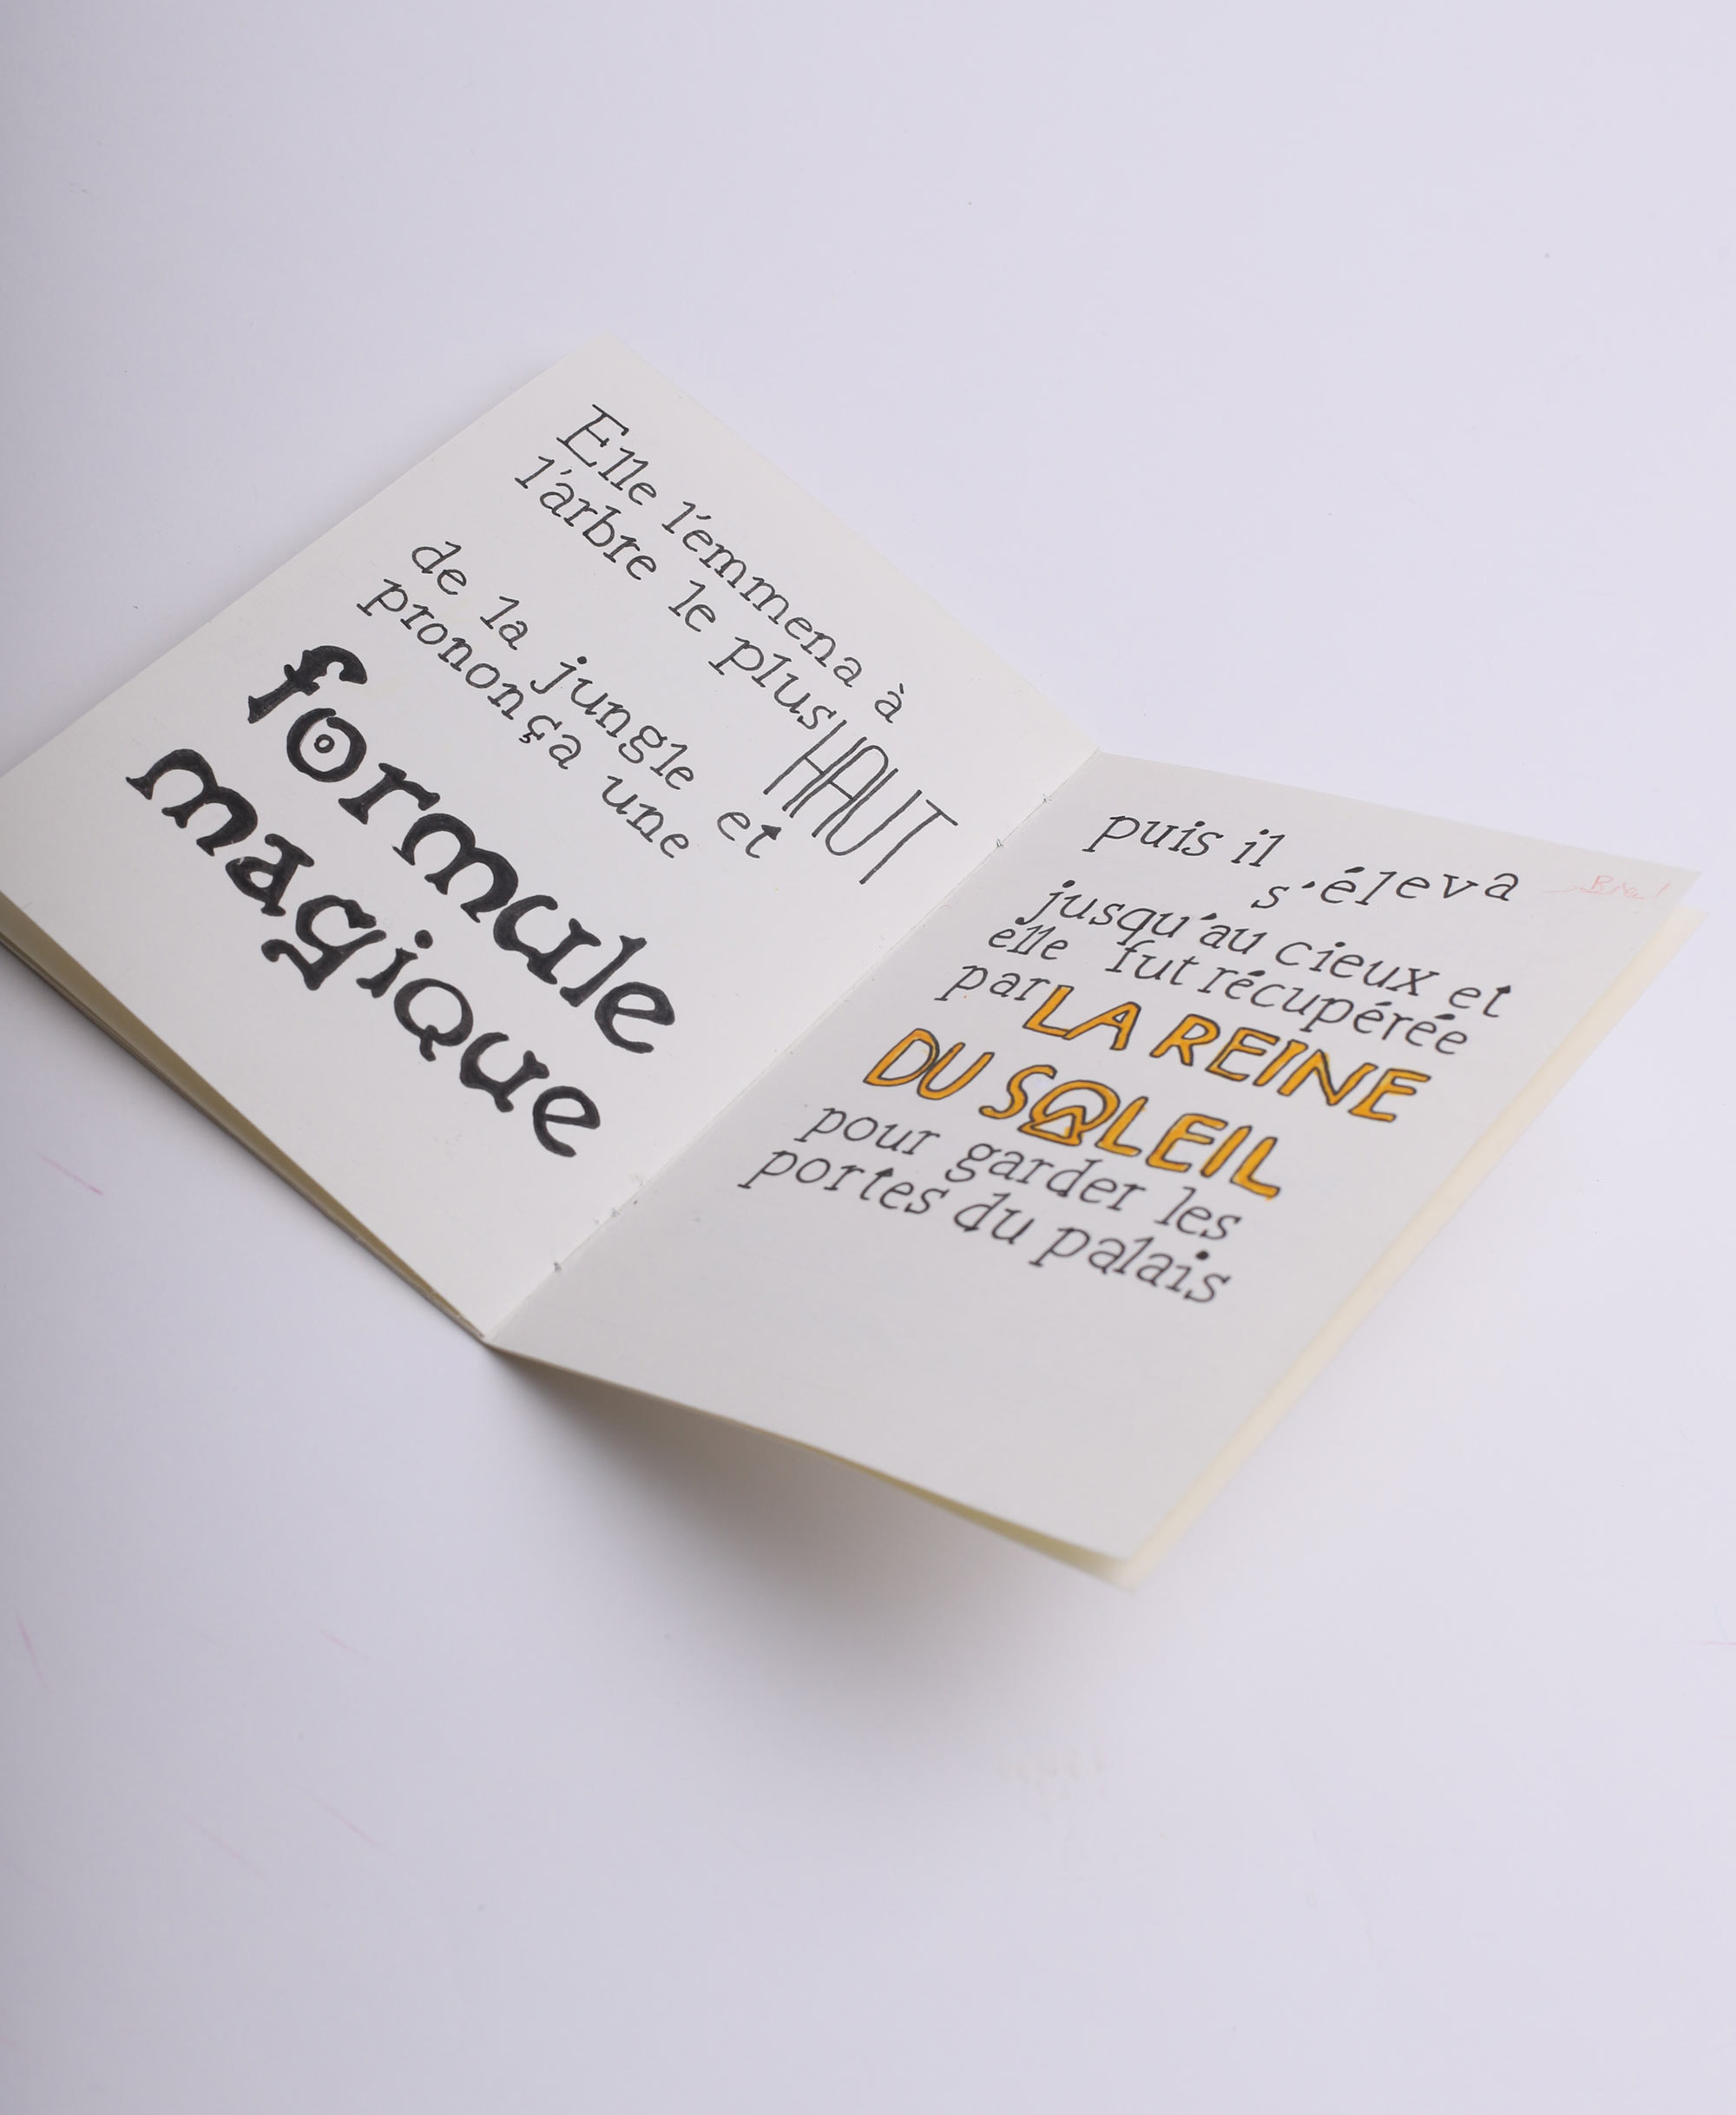 Elle l'emmena à
l'arbre le plus HAUT
de la jungle et
prononça une
formule
magique
puis il
s'éleva
jusqu'au cieux et
elle fut récupérée
par LA REINE
DU SOLEIL
pour garder les
portes du palais